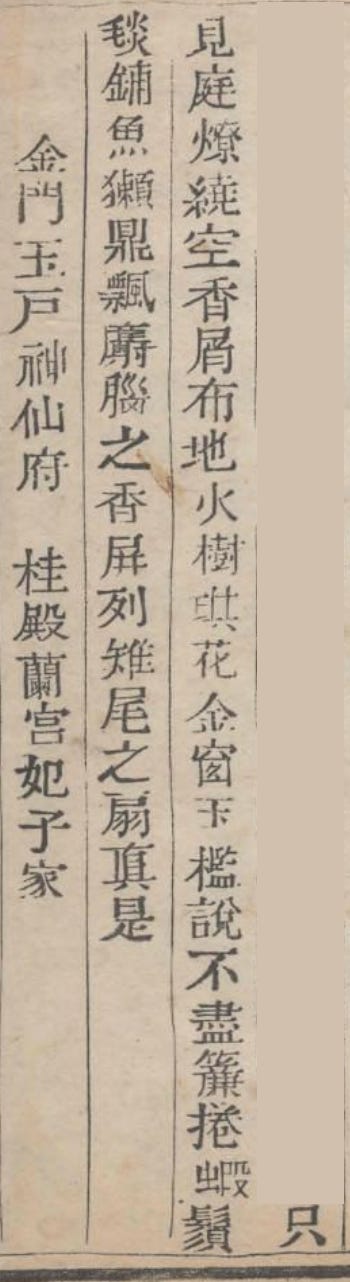 只
見庭燎繞空香屑布地火樹琪花金窗玉檻說不盡簾捲蝦鬚
毯鋪魚獺鼎飄麝腦之香屏列雉尾之扇真是
金門玉戶神仙府　桂殿蘭宮妃子家